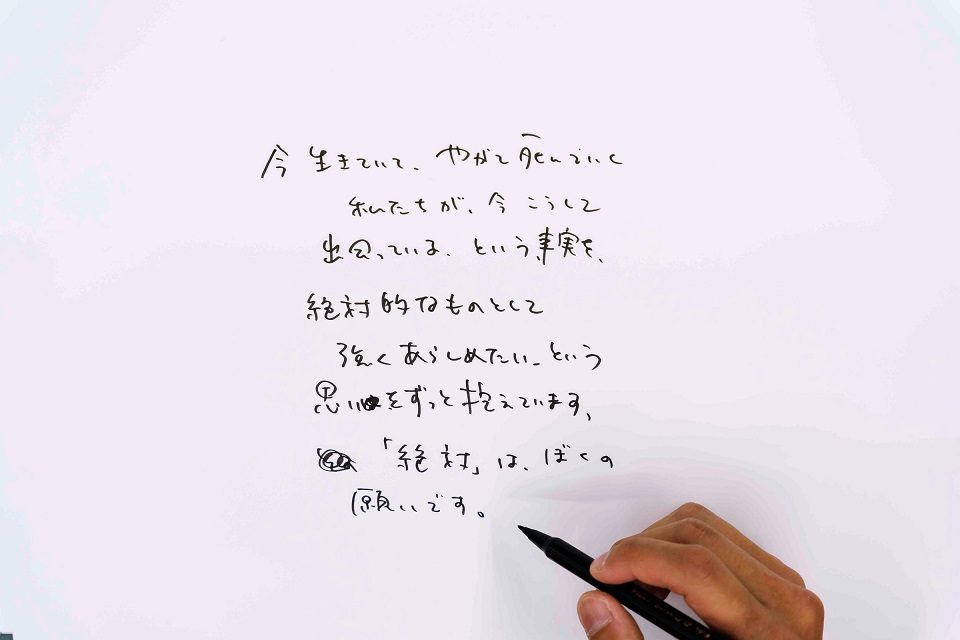 今 生きていて、やがて死んでいく
私たちが、今 こうして
出会っている、という事実を、
絶対的なものとして
強くあらしめたい、という
思いをずっと抱えています、
「絶対」は、ぼくの
願いです。